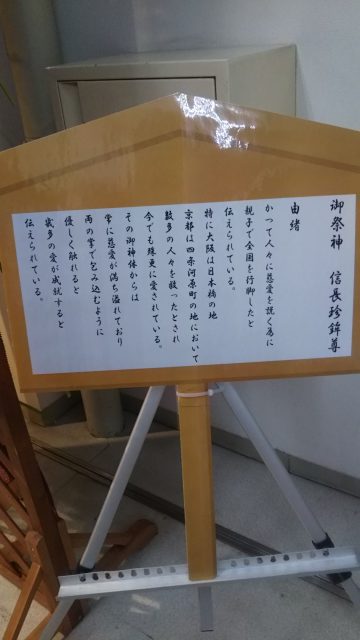 御祭神 信長珍鉾尊
由緒
かつて人々に慈愛を説く為に
親子で全国を行脚したと
伝えられている。
特に大阪は日本橋の地
京都は四条河原町の地において
数多の人々を救ったとされ
今でも殊更に愛されている。
その御神体からは
常に慈愛が満ち溢れており
両の掌で包み込むように
優しく触れると
幾多の愛が成就すると
伝えられている。